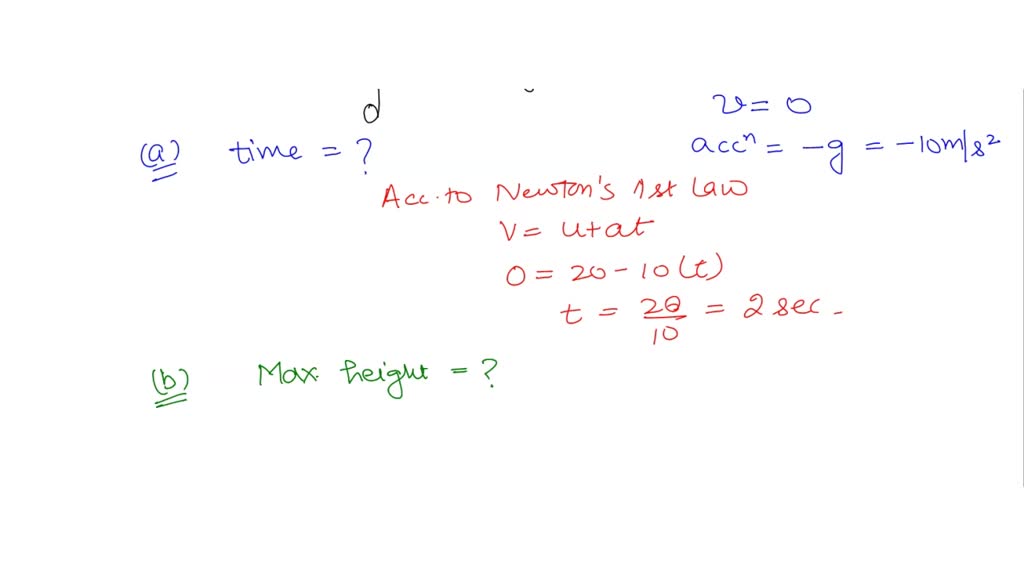 d
v = 0
(a) time = ?
accⁿ = -g = -10m/s²
Acc. to Newton's 1st Law
V = u+at
0 = 20 - 10(t)
t = 20/10 = 2 sec.
(b) Max. height = ?